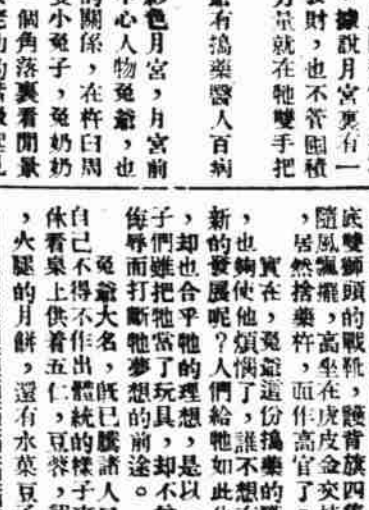 據說月宮裏有一
財，也不管囤積
量就在牠雙手把
有搗藥醫人百病
色月宮，月宮前
心人物兔爺，也
的關係，在杵臼周
小兔子，兔奶奶
個角落裏看閒景
底雙獅頭的戰靴，護背旗四
隨風飄擺，高坐在虎皮金交
，居然捨藥杵，而作高官了
實在，兔爺這份搗藥的
，也夠使他煩惱了，誰不想
新的發展呢？人們給牠如此
，却也合乎牠的理想，是以
子們雖把牠當了玩具，却不
侮辱而打斷牠夢想的前途。
兔爺大名，既已騰諸人
自己不得不作出體統的樣子
休看桌上供着五仁，豆蓉，
，火腿的月餅，還有水菜豆